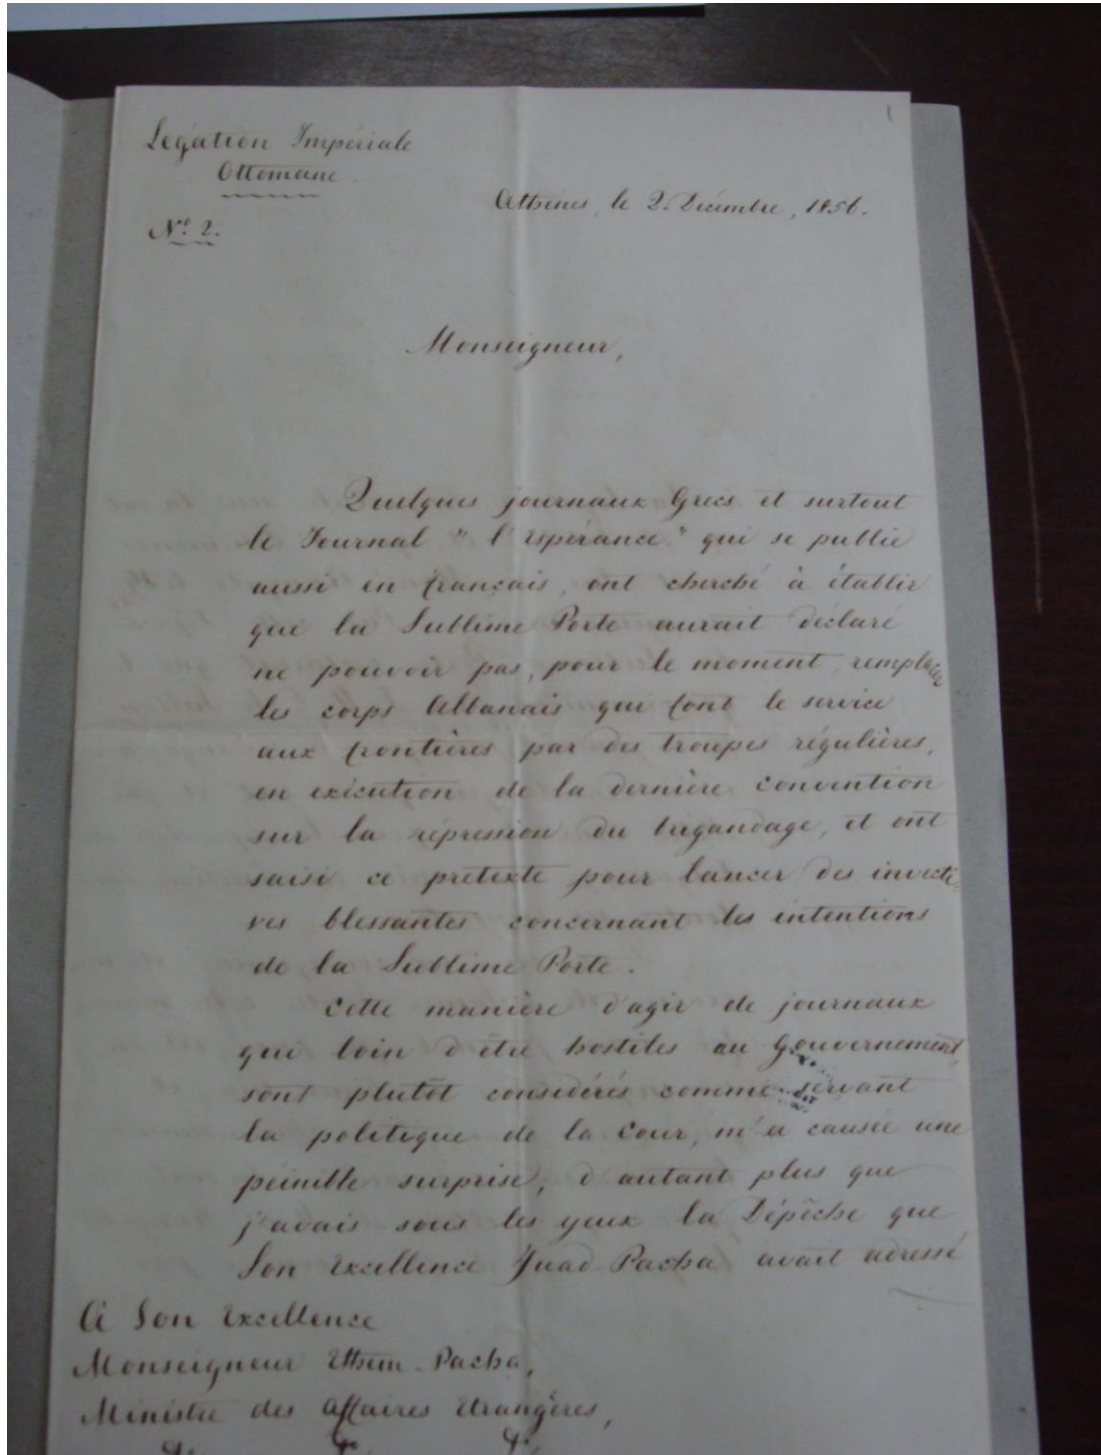 Légation Impériale
Ottomane
Nº 2.
Athènes, le 2. Décembre, 1856.
Monseigneur,
Quelques journaux Grecs et surtout
le Journal " l'Espérance " qui se publie
aussi en français, ont cherché à établir
que la Sublime Porte aurait déclaré
ne pouvoir pas, pour le moment, remplacer
les corps Albanais qui font le service
aux frontières par des troupes régulières,
en exécution de la dernière convention
sur la répression du brigandage, et ont
saisi ce prétexte pour lancer des invecti-
ves blessantes concernant les intentions
de la Sublime Porte.
Cette manière d'agir de journaux
qui loin d'être hostiles au Gouvernement,
sont plutôt considérés comme servant
la politique de la Cour, m'a causée une
peinible surprise; d'autant plus que
j'avais sous les yeux la Dépêche que
Son Excellence Fuad Pacha avait adressé
A Son Excellence
Monseigneur Ethem-Pacha,
Ministre des Affaires Etrangères,